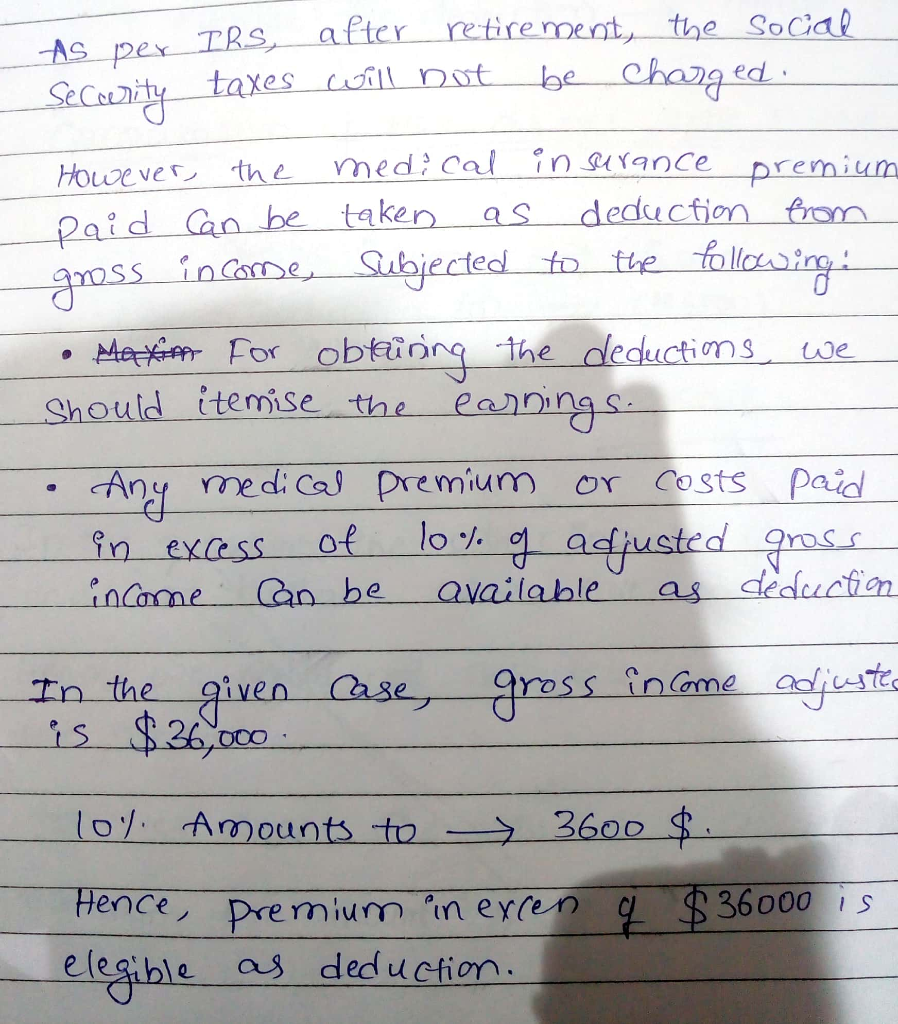 As per IRS, after retirement, the Social
Security taxes will not be charged.
However, the medical insurance premium
Paid Can be taken as deduction from
gross income, Subjected to the following:
• Maxim For obtaining the deductions, we
Should itemise the earnings.
• Any medical premium or costs paid
in excess of 10% of adjusted gross
income Can be available as deduction
In the given Case, gross income adjusted
is $36,000.
10% Amounts to → 3600 $.
Hence, premium in excess of $36000 is
elegible as deduction.